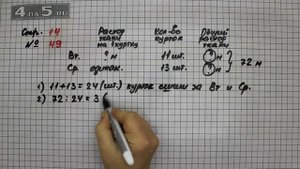 MAD.RU5
Стр. 14
№ 49
Расход ткани на 1 куртку
Кол-во курток
Общий расход ткани
Вт. ? м 11 шт. ? м
Ср. одинак. 13 шт. ? м
72 м
1) 11+13=24 (шт.) курток сшили за Вт и Ср.
2) 72:24=3 (